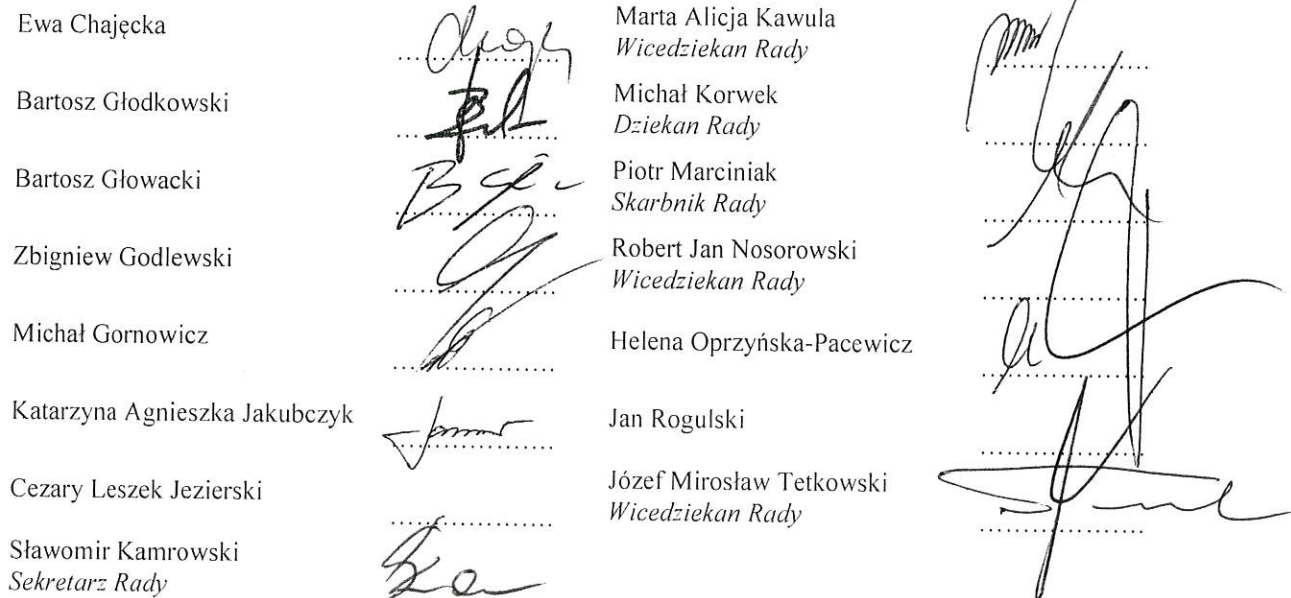 Ewa Chajęcka
Bartosz Głodkowski
Bartosz Głowacki
Zbigniew Godlewski
Michał Gornowicz
Katarzyna Agnieszka Jakubczyk
Cezary Leszek Jezierski
Sławomir Kamrowski
Sekretarz Rady
Marta Alicja Kawula
Wicedziekan Rady
Michał Korwek
Dziekan Rady
Piotr Marciniak
Skarbnik Rady
Robert Jan Nosorowski
Wicedziekan Rady
Helena Oprzyńska-Pacewicz
Jan Rogulski
Józef Mirosław Tetkowski
Wicedziekan Rady